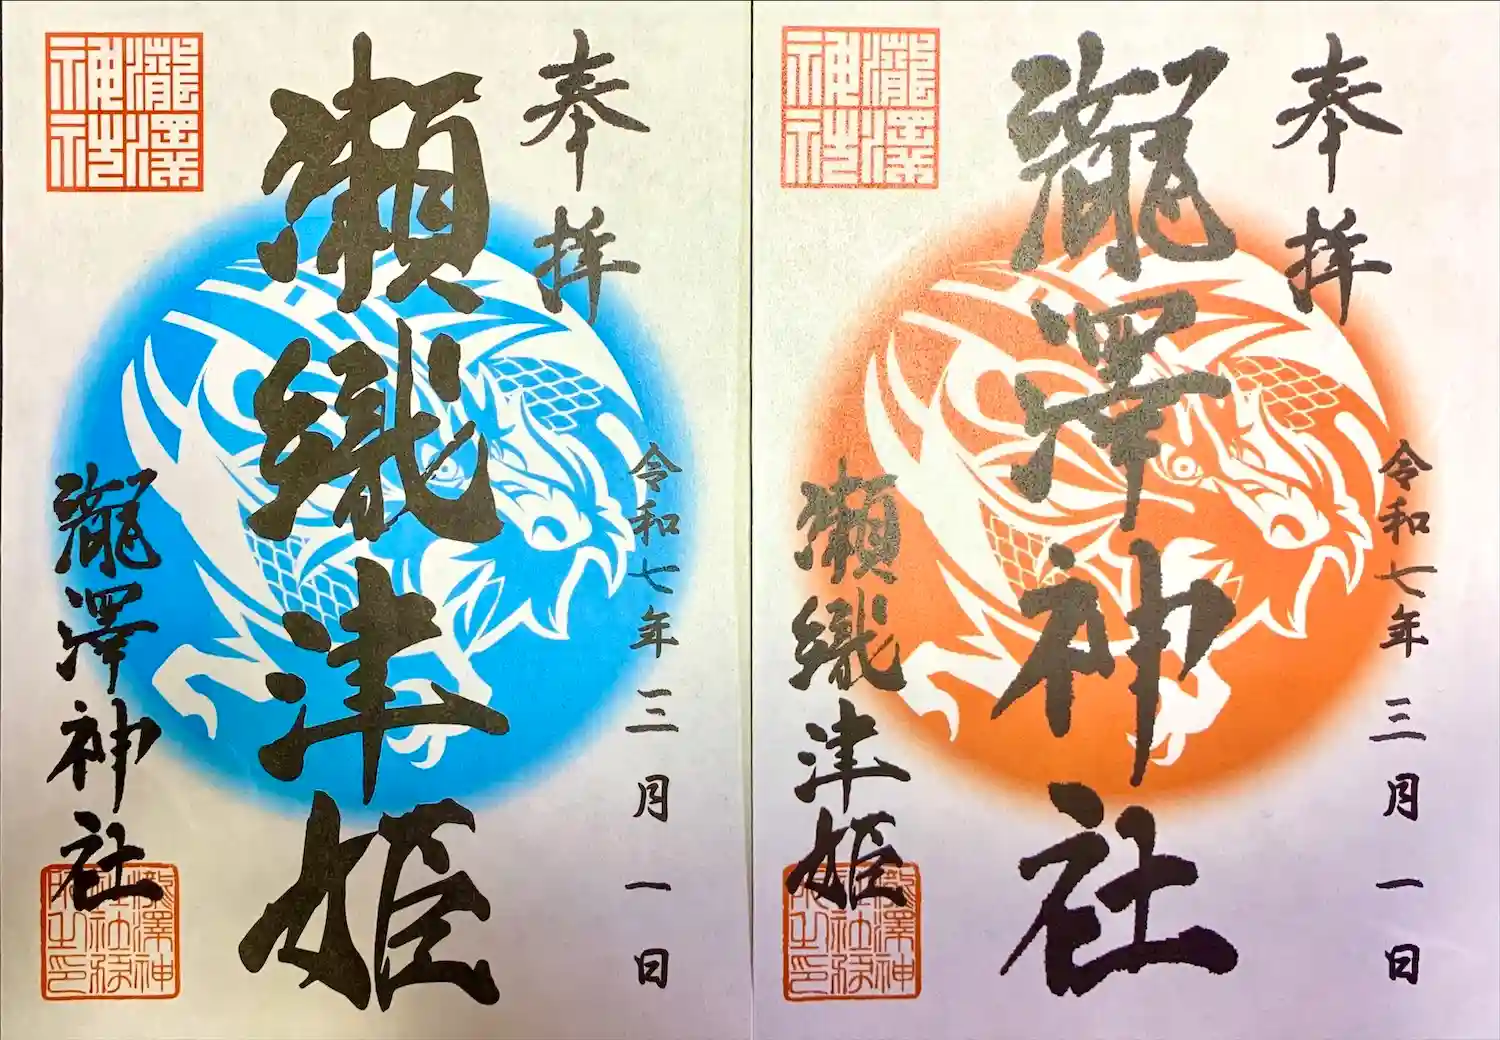 奉拝
令和七年三月一日
瀧澤神社
瀬織津姫
瀧澤神社
瀬織津姫
奉拝
令和七年三月一日
瀬織津姫
瀧澤神社
瀧澤神社